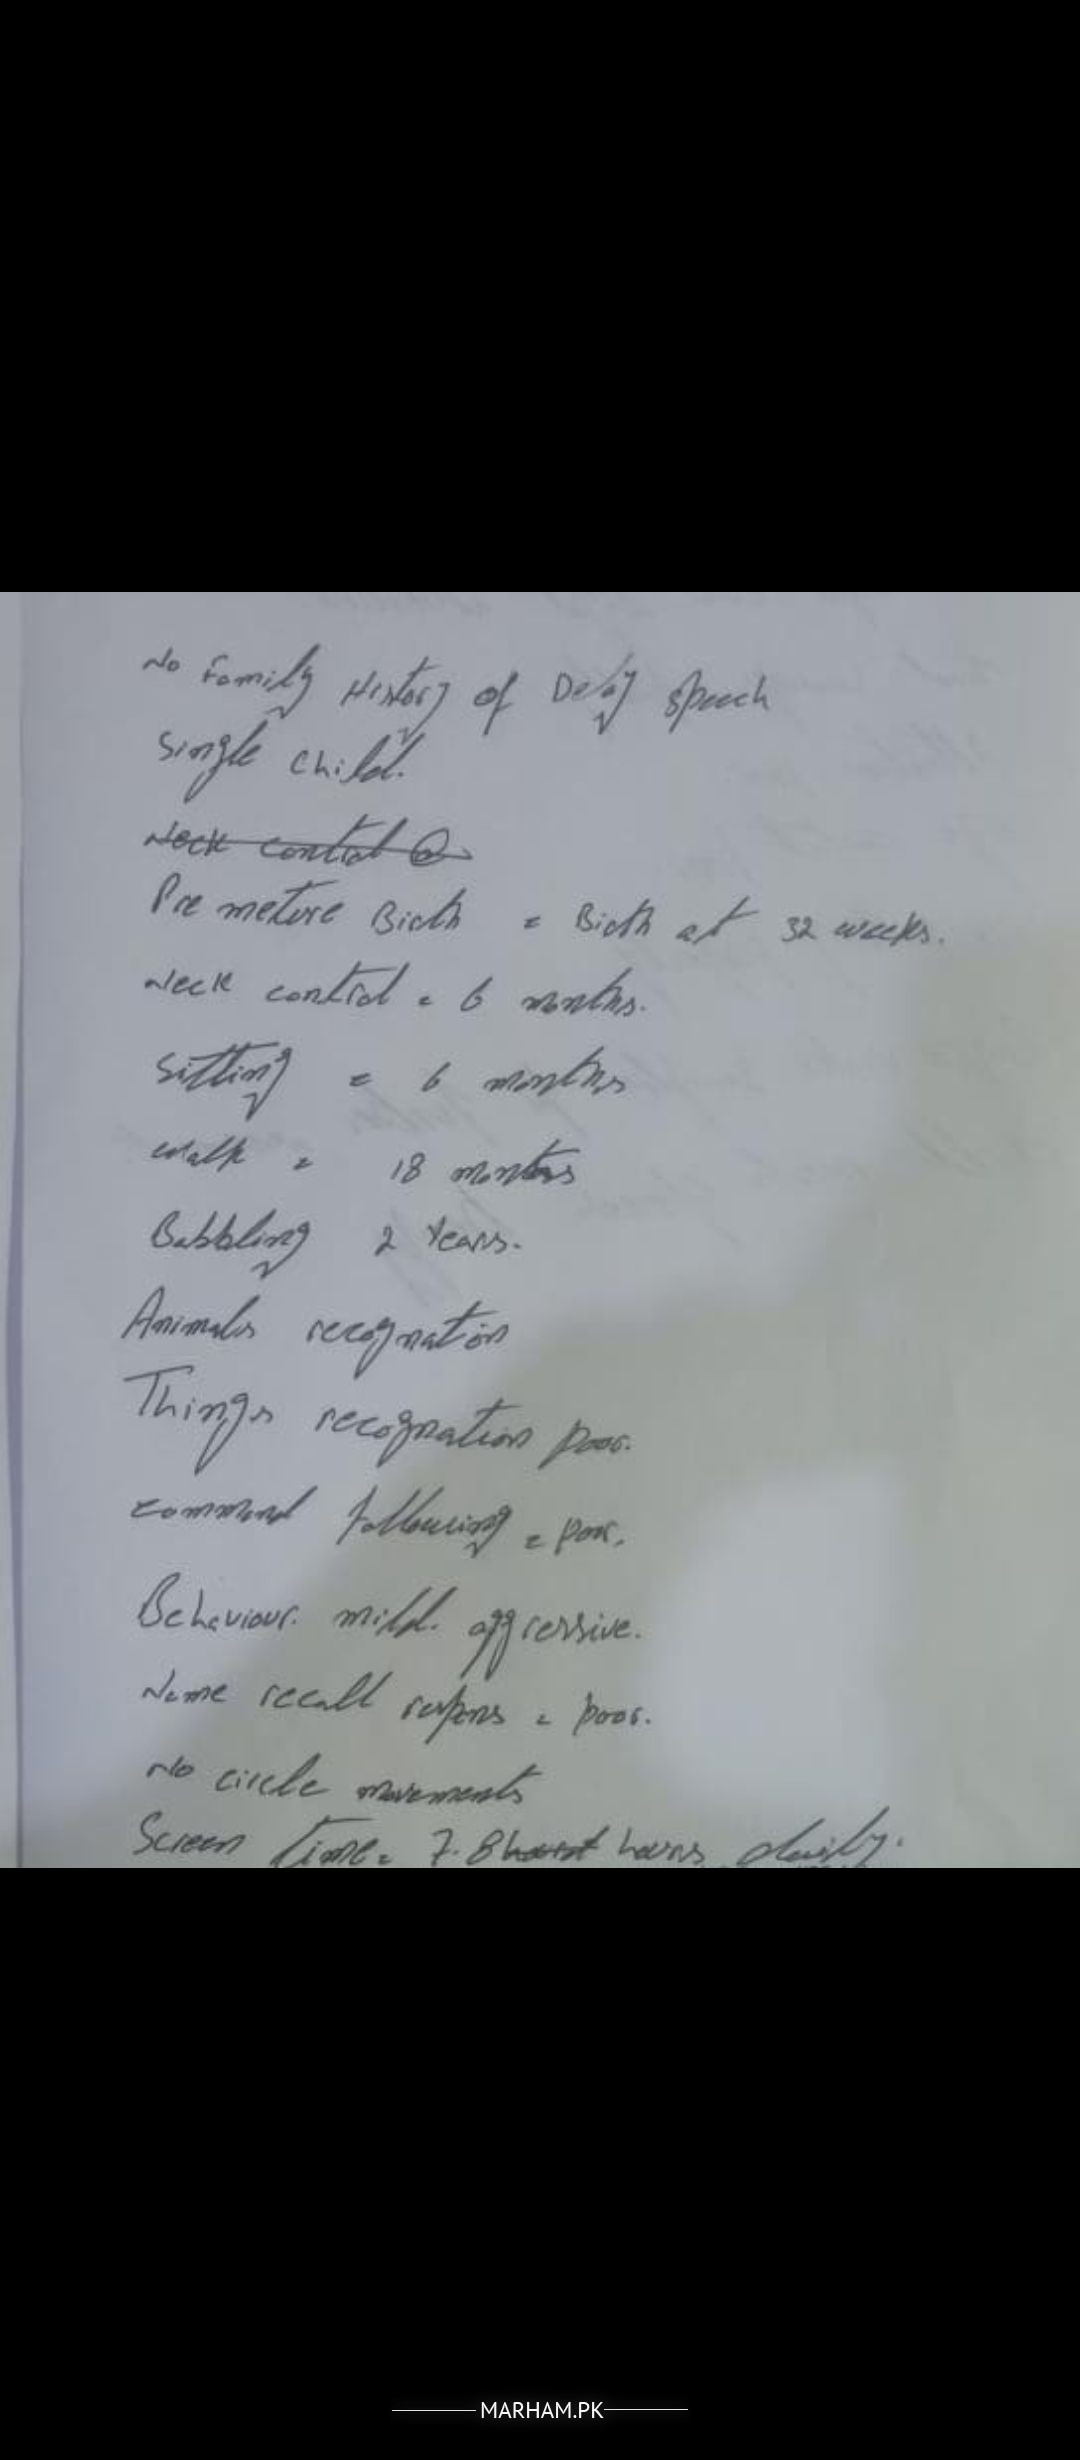 No Family History of Delay speech
Single child.
Neck control
Premeture Birth = Birth at 32 weeks.
Neck control = 6 months.
Sitting = 6 months
walk = 18 months
Babbling 2 Years.
Animals recognation
Things recognation poor.
command following = poor.
Behaviour. mild. aggressive.
Name recall respons = poor.
No circle movements
Screen time = 7.8 hours daily.
MARHAM.PK